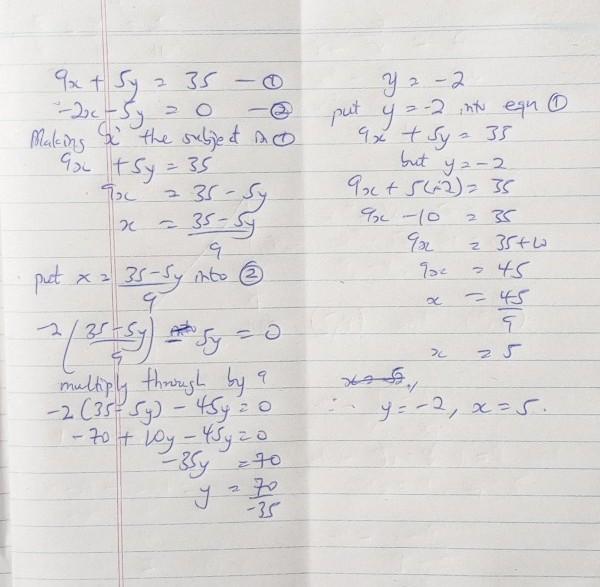 9x + 5y = 35 — ①
-2x - 5y = 0 — ②
Making 'x' the subject in ①
9x + 5y = 35
9x = 35 - 5y
x = 35 - 5y
9
put x = 35 - 5y into ②
9
-2(35 - 5y) - 5y = 0
9
multiply through by 9
-2(35 - 5y) - 45y = 0
-70 + 10y - 45y = 0
-35y = 70
y = 70
-35
y = -2
put y = -2 into eqn ①
9x + 5y = 35
but y = -2
9x + 5(-2) = 35
9x - 10 = 35
9x = 35 + 10
9x = 45
x = 45
9
x = 5
∴ y = -2, x = 5.